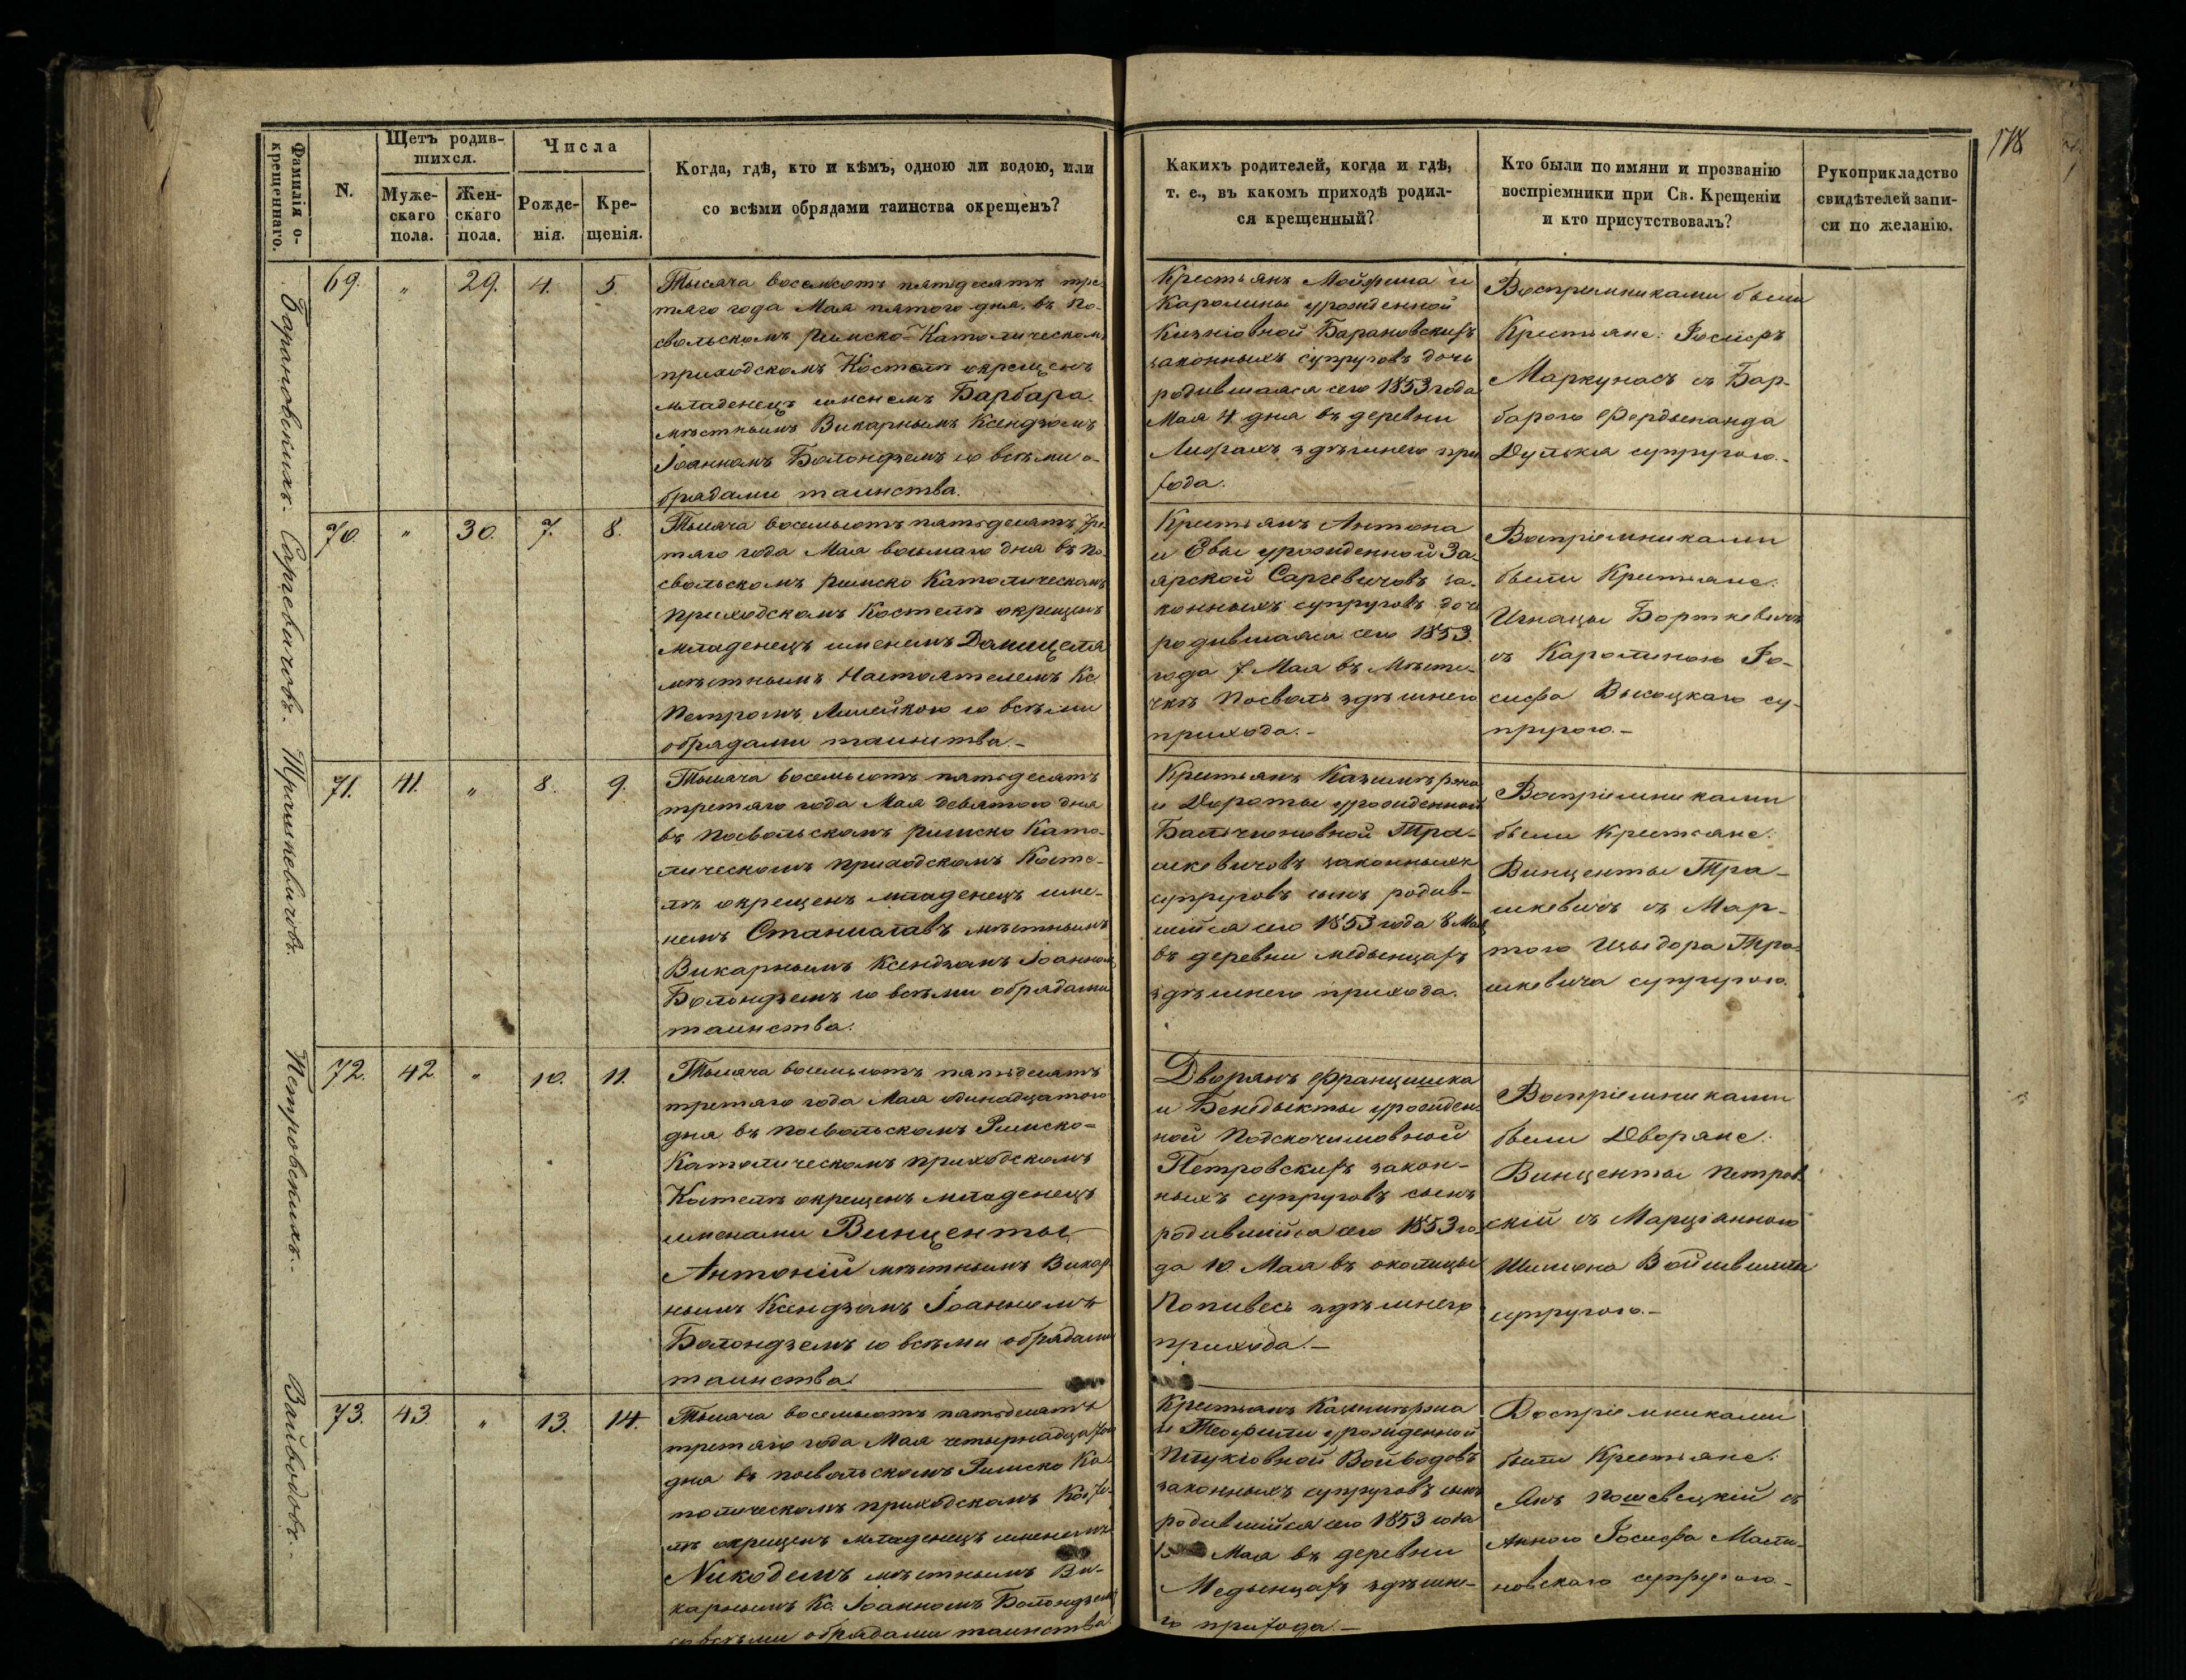 178
Фамилія о-
крещеннаго.
N.
Щетъ родив-
шихся.
Муже-
скаго
пола.
Жен-
скаго
пола.
Числа
Рожде-
нія.
Кре-
щенія.
Когда, гдѣ, кто и кѣмъ, одною ли водою, или
со всѣми обрядами таинства окрещенъ?
Какихъ родителей, когда и гдѣ,
т. е., въ какомъ приходѣ родил-
ся крещенный?
Кто были по имяни и прозванію
воспріемники при Св. Крещеніи
и кто присутствовалъ?
Рукоприкладство
свидѣтелей запи-
си по желанію.
Барановскихъ.
69. " 29. 4. 5.
Тысяча восемсотъ пятьдесятъ тре-
тяго года Мая пятого дня въ По-
свольскомъ Римско-Католическомъ
приходскомъ Костелѣ окрещенъ
младенецъ именемъ Барбара
мѣстнымъ Викарнымъ Ксендзомъ
Іоанномъ Болондземъ со всѣми о-
брядами таинства.
Крестьянъ Мойжеша и
Каролины урожденной
Барановскихъ
законныхъ супруговъ дочь
родившаяся сего 1853 года
Мая 4 дня въ деревни
здѣшнего при-
хода.
Воспріемниками были
Крестьяне: Іосифъ
Маркунасъ съ Бар-
барою Фердынанда
супругою.-
Саргевичовъ.
70. " 30. 7. 8.
Тысяча восемьсотъ пятьдесятъ тре-
тяго года Мая восьмаго дня въ По-
свольскомъ Римско Католическомъ
приходскомъ Костелѣ окрещенъ
младенецъ именемъ Домицеля
мѣстнымъ Настоятелемъ Кс.
Петромъ со всѣми
обрядами таинства.-
Крестьянъ Антона
и Евы урожденной За-
ярской Саргевичовъ за-
конныхъ супруговъ дочь
родившаяся сего 1853
года 7 Мая въ Мѣсте-
чкѣ Посволь здѣшнего
прихода.-
Воспріемниками
были Крестьяне:
Игнацы Борткевичъ
съ Каролиною Іо-
сифа Высоцкаго су-
пругою.-
Трашкевичовъ.
71. 41. " 8. 9.
Тысяча восемьсотъ пятьдесятъ
третяго года Мая девятого дня
въ Посвольскомъ Римско Като-
лическомъ приходскомъ Косте-
лѣ окрещенъ младенецъ име-
немъ Станиславъ мѣстнымъ
Викарнымъ Ксендзомъ Іоанномъ
Болондземъ со всѣми обрядами
таинства.
Крестьянъ Казимѣржа
и Дороты урожденной
Бальчюновной Тра-
шкевичовъ законныхъ
супруговъ сынъ родив-
шійся сего 1853 года 8 Мая
въ деревни Медынцахъ
здѣшнего прихода.
Воспріемниками
были Крестьяне:
Винценты Тра-
шкевичъ съ Мар-
тою Изыдора Тра-
шкевича супругою.
Петровскихъ.
72. 42. " 10. 11.
Тысяча восемьсотъ пятьдесятъ
третяго года Мая одинадцатого
дня въ Посвольскомъ Римско-
Католическомъ приходскомъ
Костелѣ окрещенъ младенецъ
именами Винценты
Антоній мѣстнымъ Викар-
нымъ Ксендзомъ Іоанномъ
Болондземъ со всѣми обрядами
таинства.
Дворянъ Францишка
и Бенедыкты урожден-
ной
Петровскихъ закон-
ныхъ супруговъ сынъ
родившійся сего 1853 го-
да 10 Мая въ околицы
Попивесь здѣшнего
прихода.-
Воспріемниками
были Дворяне:
Винценты Петров-
скій съ Марціанною
Шимона
супругою.-
Вайводовъ.-
73. 43. " 13. 14.
Тысяча восемьсотъ пятьдесятъ
третяго года Мая четырнадцатого
дня въ Посвольскомъ Римско Ка-
толическомъ приходскомъ Косте-
лѣ окрещенъ младенецъ именемъ
Никодемъ мѣстнымъ Ви-
карнымъ Кс. Іоанномъ Болондземъ
со всѣми обрядами таинства.
Крестьянъ Казимѣржа
и Теофили урожденной
Войводовъ
законныхъ супруговъ сынъ
родившійся сего 1853 года
Мая въ деревни
Медынцахъ здѣшне-
го прихода.-
Воспріемниками
были Крестьяне:
Янъ съ
Анною Іосифа Мали-
новскаго супругою.-